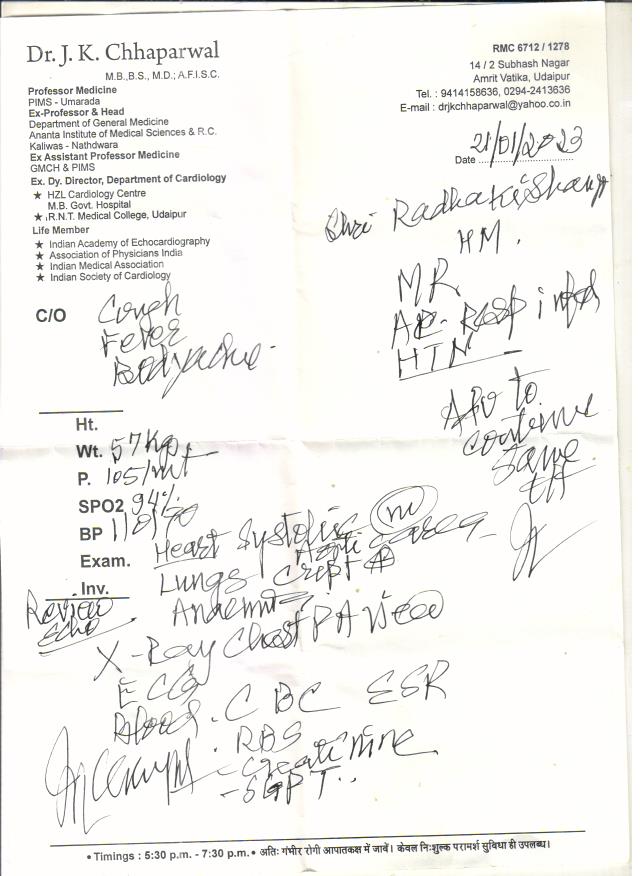 Dr. J. K. Chhaparwal
M.B.,B.S., M.D.; A.F.I.S.C.
Professor Medicine
PIMS - Umarada
Ex-Professor & Head
Department of General Medicine
Ananta Institute of Medical Sciences & R.C.
Kaliwas - Nathdwara
Ex Assistant Professor Medicine
GMCH & PIMS
Ex. Dy. Director, Department of Cardiology
★ HZL Cardiology Centre
M.B. Govt. Hospital
★ R.N.T. Medical College, Udaipur
Life Member
★ Indian Academy of Echocardiography
★ Association of Physicians India
★ Indian Medical Association
★ Indian Society of Cardiology
RMC 6712 / 1278
14 / 2 Subhash Nagar
Amrit Vatika, Udaipur
Tel. : 9414158636, 0294-2413636
E-mail : drjkchhaparwal@yahoo.co.in
Date 21/01/2023
Shri
HM.
MR
Resp
HTN
to
continue
same
C/O Cough
Fever
Bodyache
Ht.
Wt. 57Kg
P. 105/mt
SPO2 94%
BP
Exam. Heart Systolic (m)
area
Lungs Crept
Inv.
Review
Echo
X-Ray Chest PA View
ECG
Blood. CBC ESR
RBS
- Creatinine
- SGPT
• Timings : 5:30 p.m. - 7:30 p.m. • अतिः गंभीर रोगी आपातकक्ष में जावें। केवल निःशुल्क परामर्श सुविधा ही उपलब्ध।